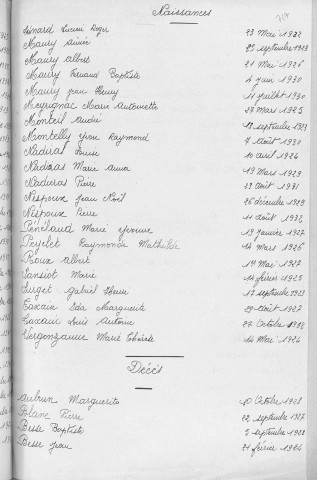 Naissances
Lienard Lucien Roger 23 Mai 1932
Maury Aimée 25 septembre 1928
Maury Albert 21 Mai 1926
Maury Fernand Baptiste 4 juin 1930
Maury Jean Henry 11 juillet 1930
Meyrignac Marie Antoinette 27 mars 1925
Monteil André 18 septembre 1923
Montelly Yvon Raymond 7 Août 1930
Nadiras Louise 10 avril 1924
Nadiras Marie Anna 19 Mars 1929
Naduras Pierre 22 Août 1931
Nespoux Jean Noël 26 décembre 1929
Nespoux Pierre 11 août 1932
Pénélaud Marie Yvonne 13 Janvier 1927
Peyclet Raymonde Mathilde 14 mars 1926
Roux Albert 14 Mai 1927
Sansiot Marie 14 février 1925
Surget Gabriel Pierre 12 septembre 1923
Taxain Ida Marguerite 29 août 1927
Tuxani Louis Antoine 27 Octobre 1932
Vergonzanne Marie Thérèse 14 Mai 1924
Décès
Aubrun Marguerite 10 Octobre 1928
Blanc Pierre 22 septembre 1927
Besse Baptiste 5 septembre 1928
Besse Jean 21 février 1924